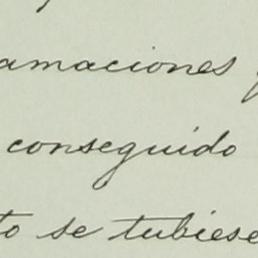 amaciones
conseguido
to se tubiese